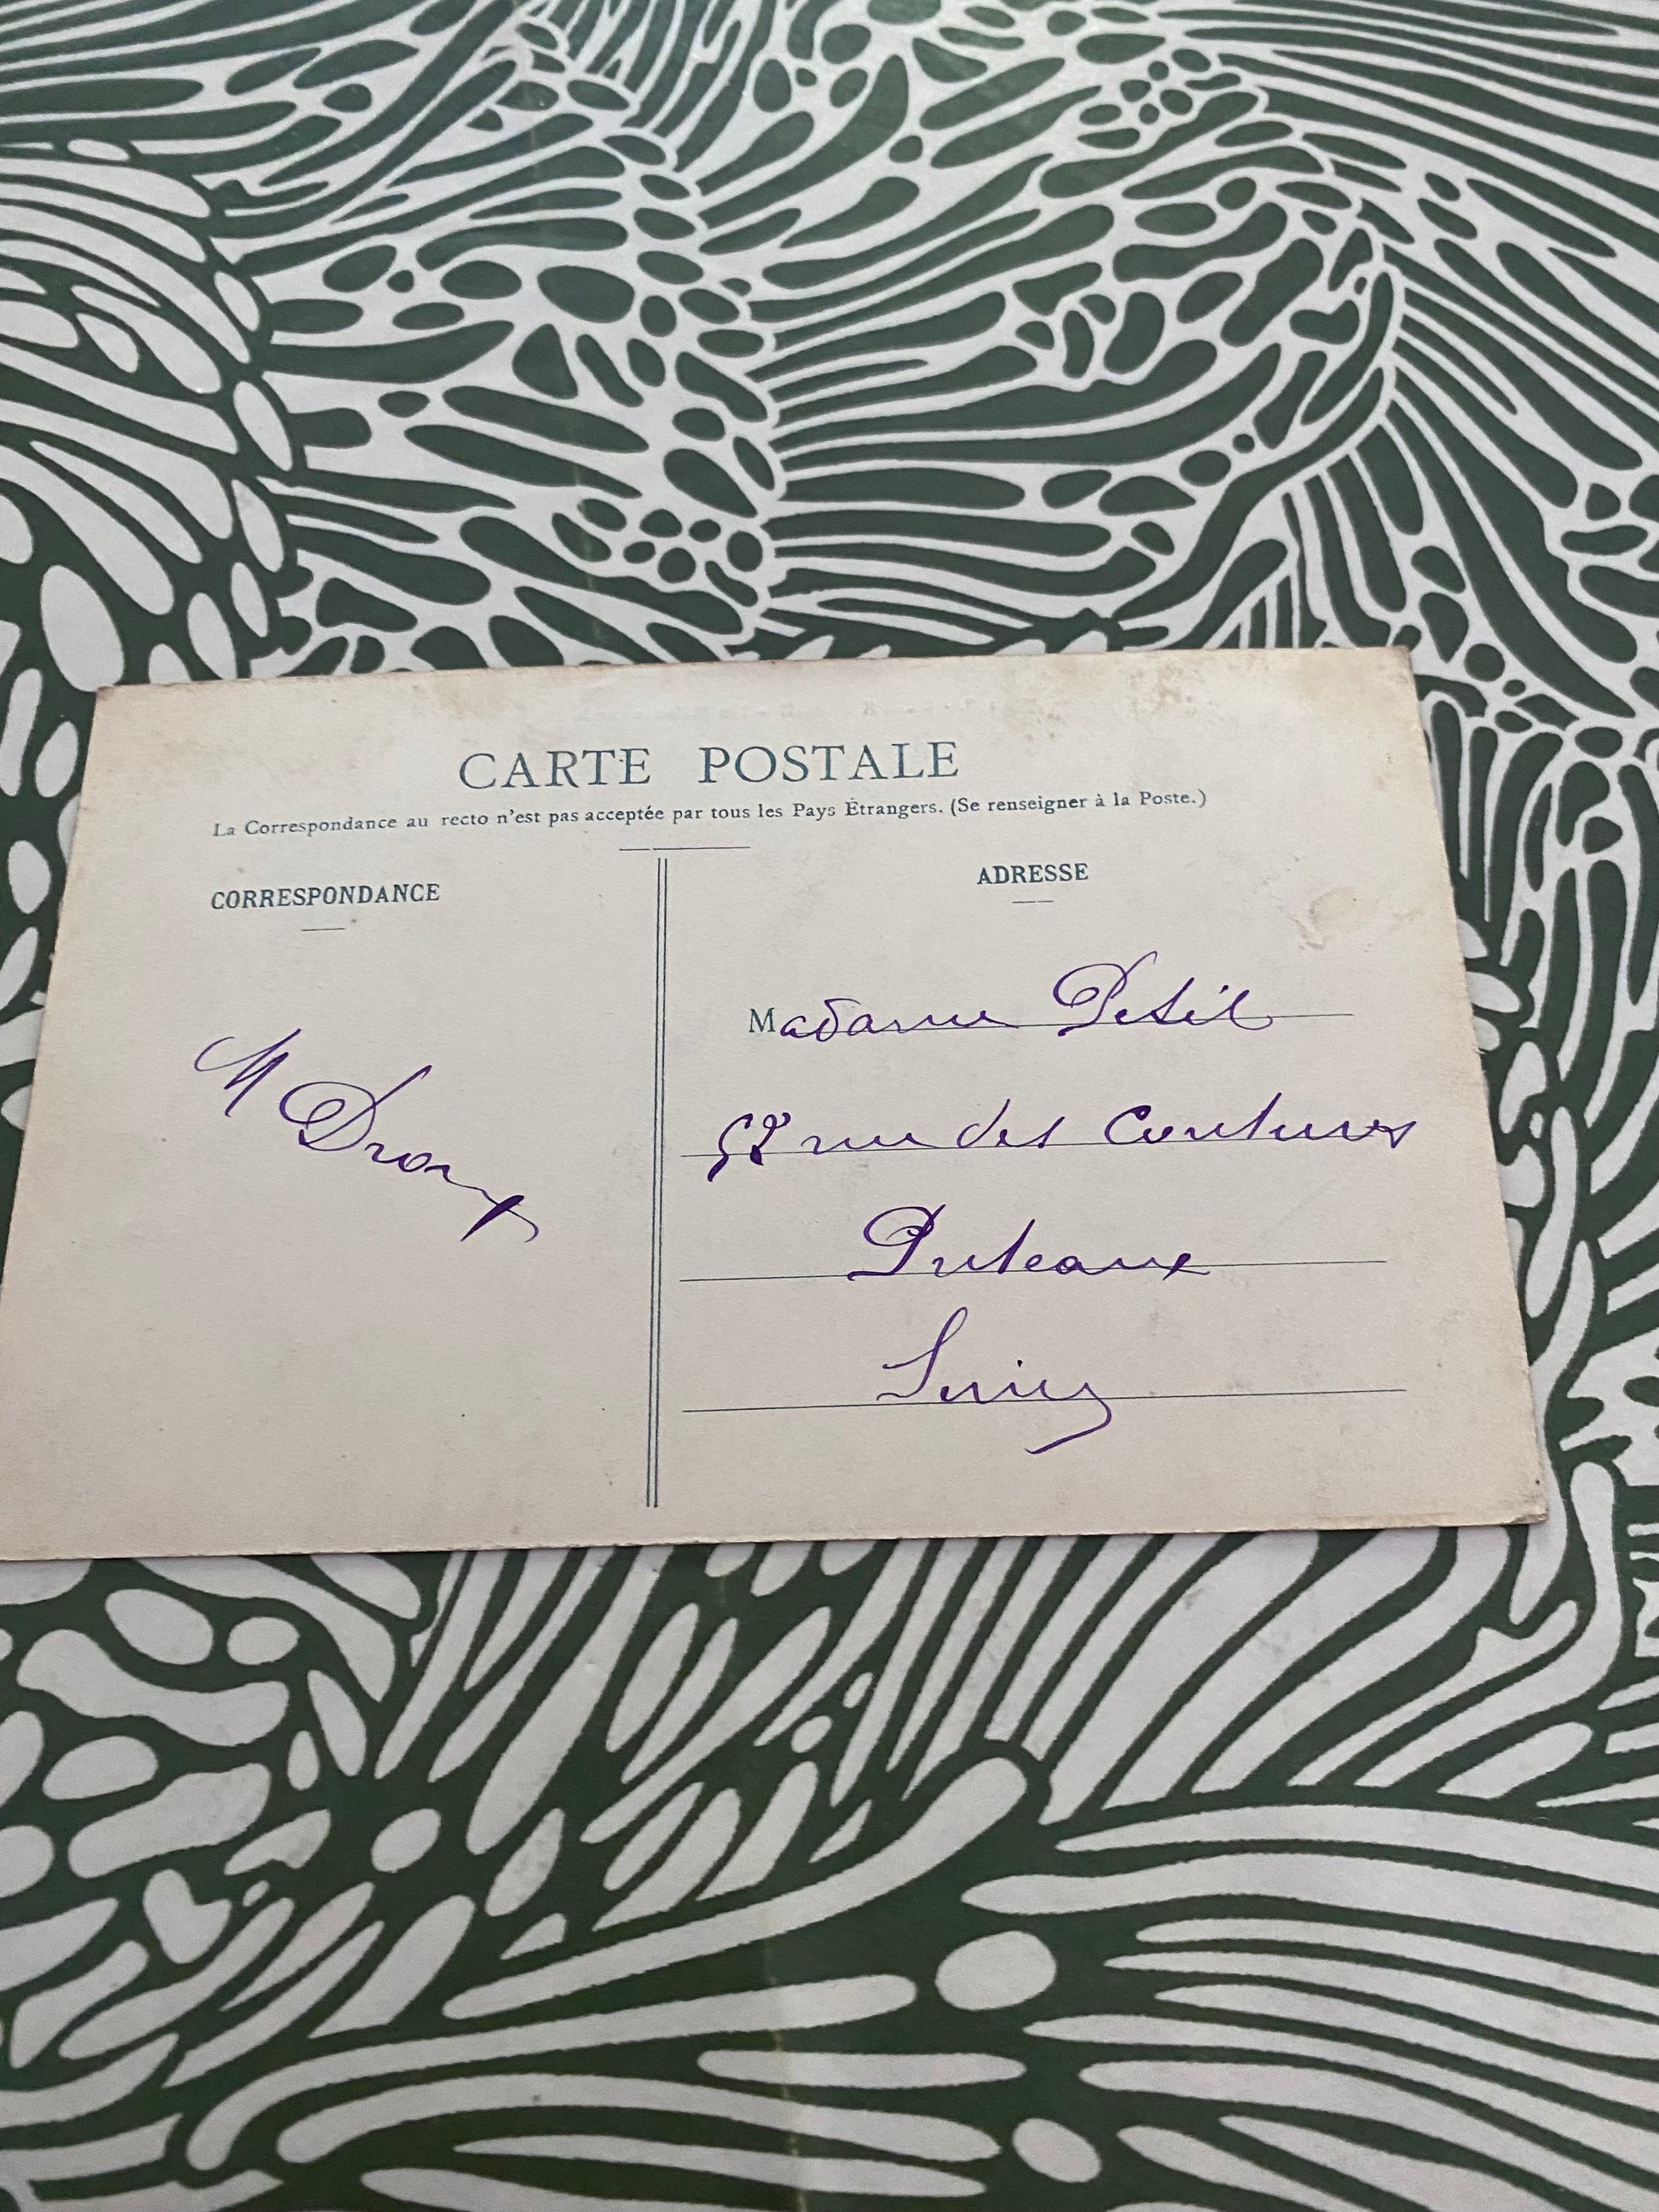 CARTE POSTALE
La Correspondance au recto n'est pas acceptée par tous les Pays Étrangers. (Se renseigner à la Poste.)
CORRESPONDANCE
ADRESSE
M Droux
Madame Petit
58 rue des Coutures
Puteaux
Seine